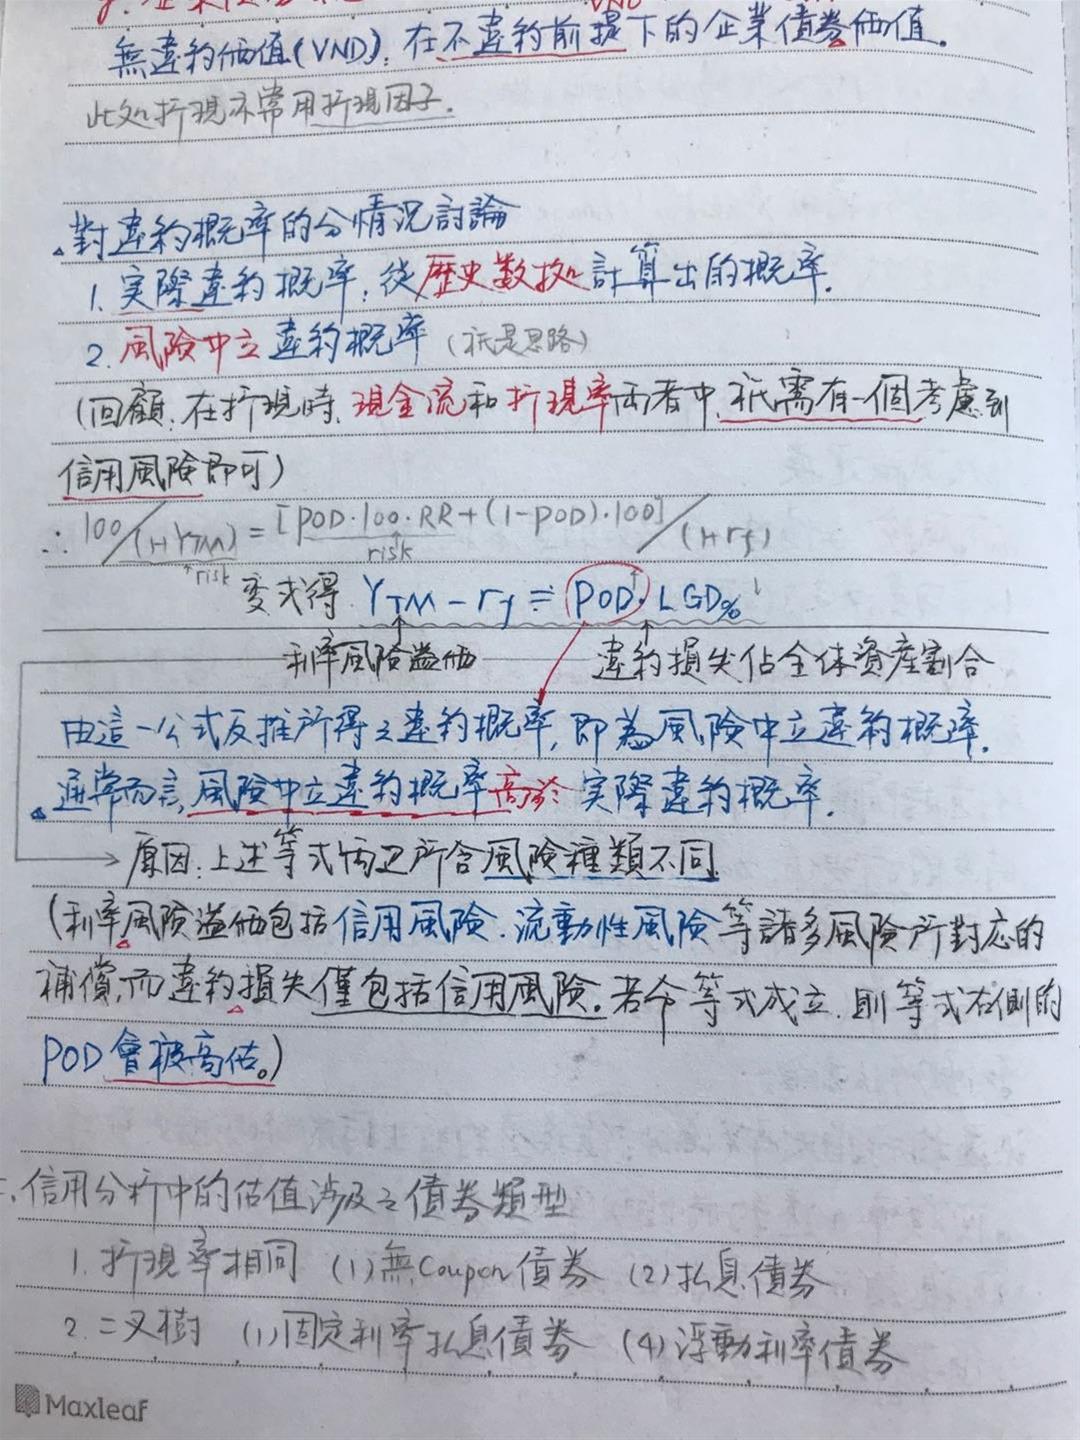 無違約価值(VND): 在不違約前提下的企業債券価值。
此処折現亦常用折現因子.
對違約概率的分情況討論
1. 実際違約概率: 從歷史数拠計算出的概率.
2. 風險中立違約概率 (祇是思路)
(回顧: 在折現時, 現金流和折現率両者中, 祇需有一個考慮到
信用風險即可)
∴ 100/(1+YTM) = [POD·100·RR+(1-POD)·100]/(1+rf)
↑risk risk
変式得 YTM - rf ≒ POD↑·LGD%↓
利率風險溢価 違約損失佔全体資産割合
由這一公式反推所得之違約概率, 即為風險中立違約概率.
通常而言, 風險中立違約概率高於実際違約概率.
原因: 上述等式両辺所含風險種類不同
(利率風險溢価包括信用風險. 流動性風險等諸多風險所對応的
補償, 而違約損失僅包括信用風險. 若令等式成立, 則等式右側的
POD會被高估。)
信用分析中的估值涉及之債券類型
1. 折現率相同 (1)無Coupon債券 (2)払息債券
2. 二叉樹 (1)固定利率払息債券 (4)浮動利率債券
Maxleaf